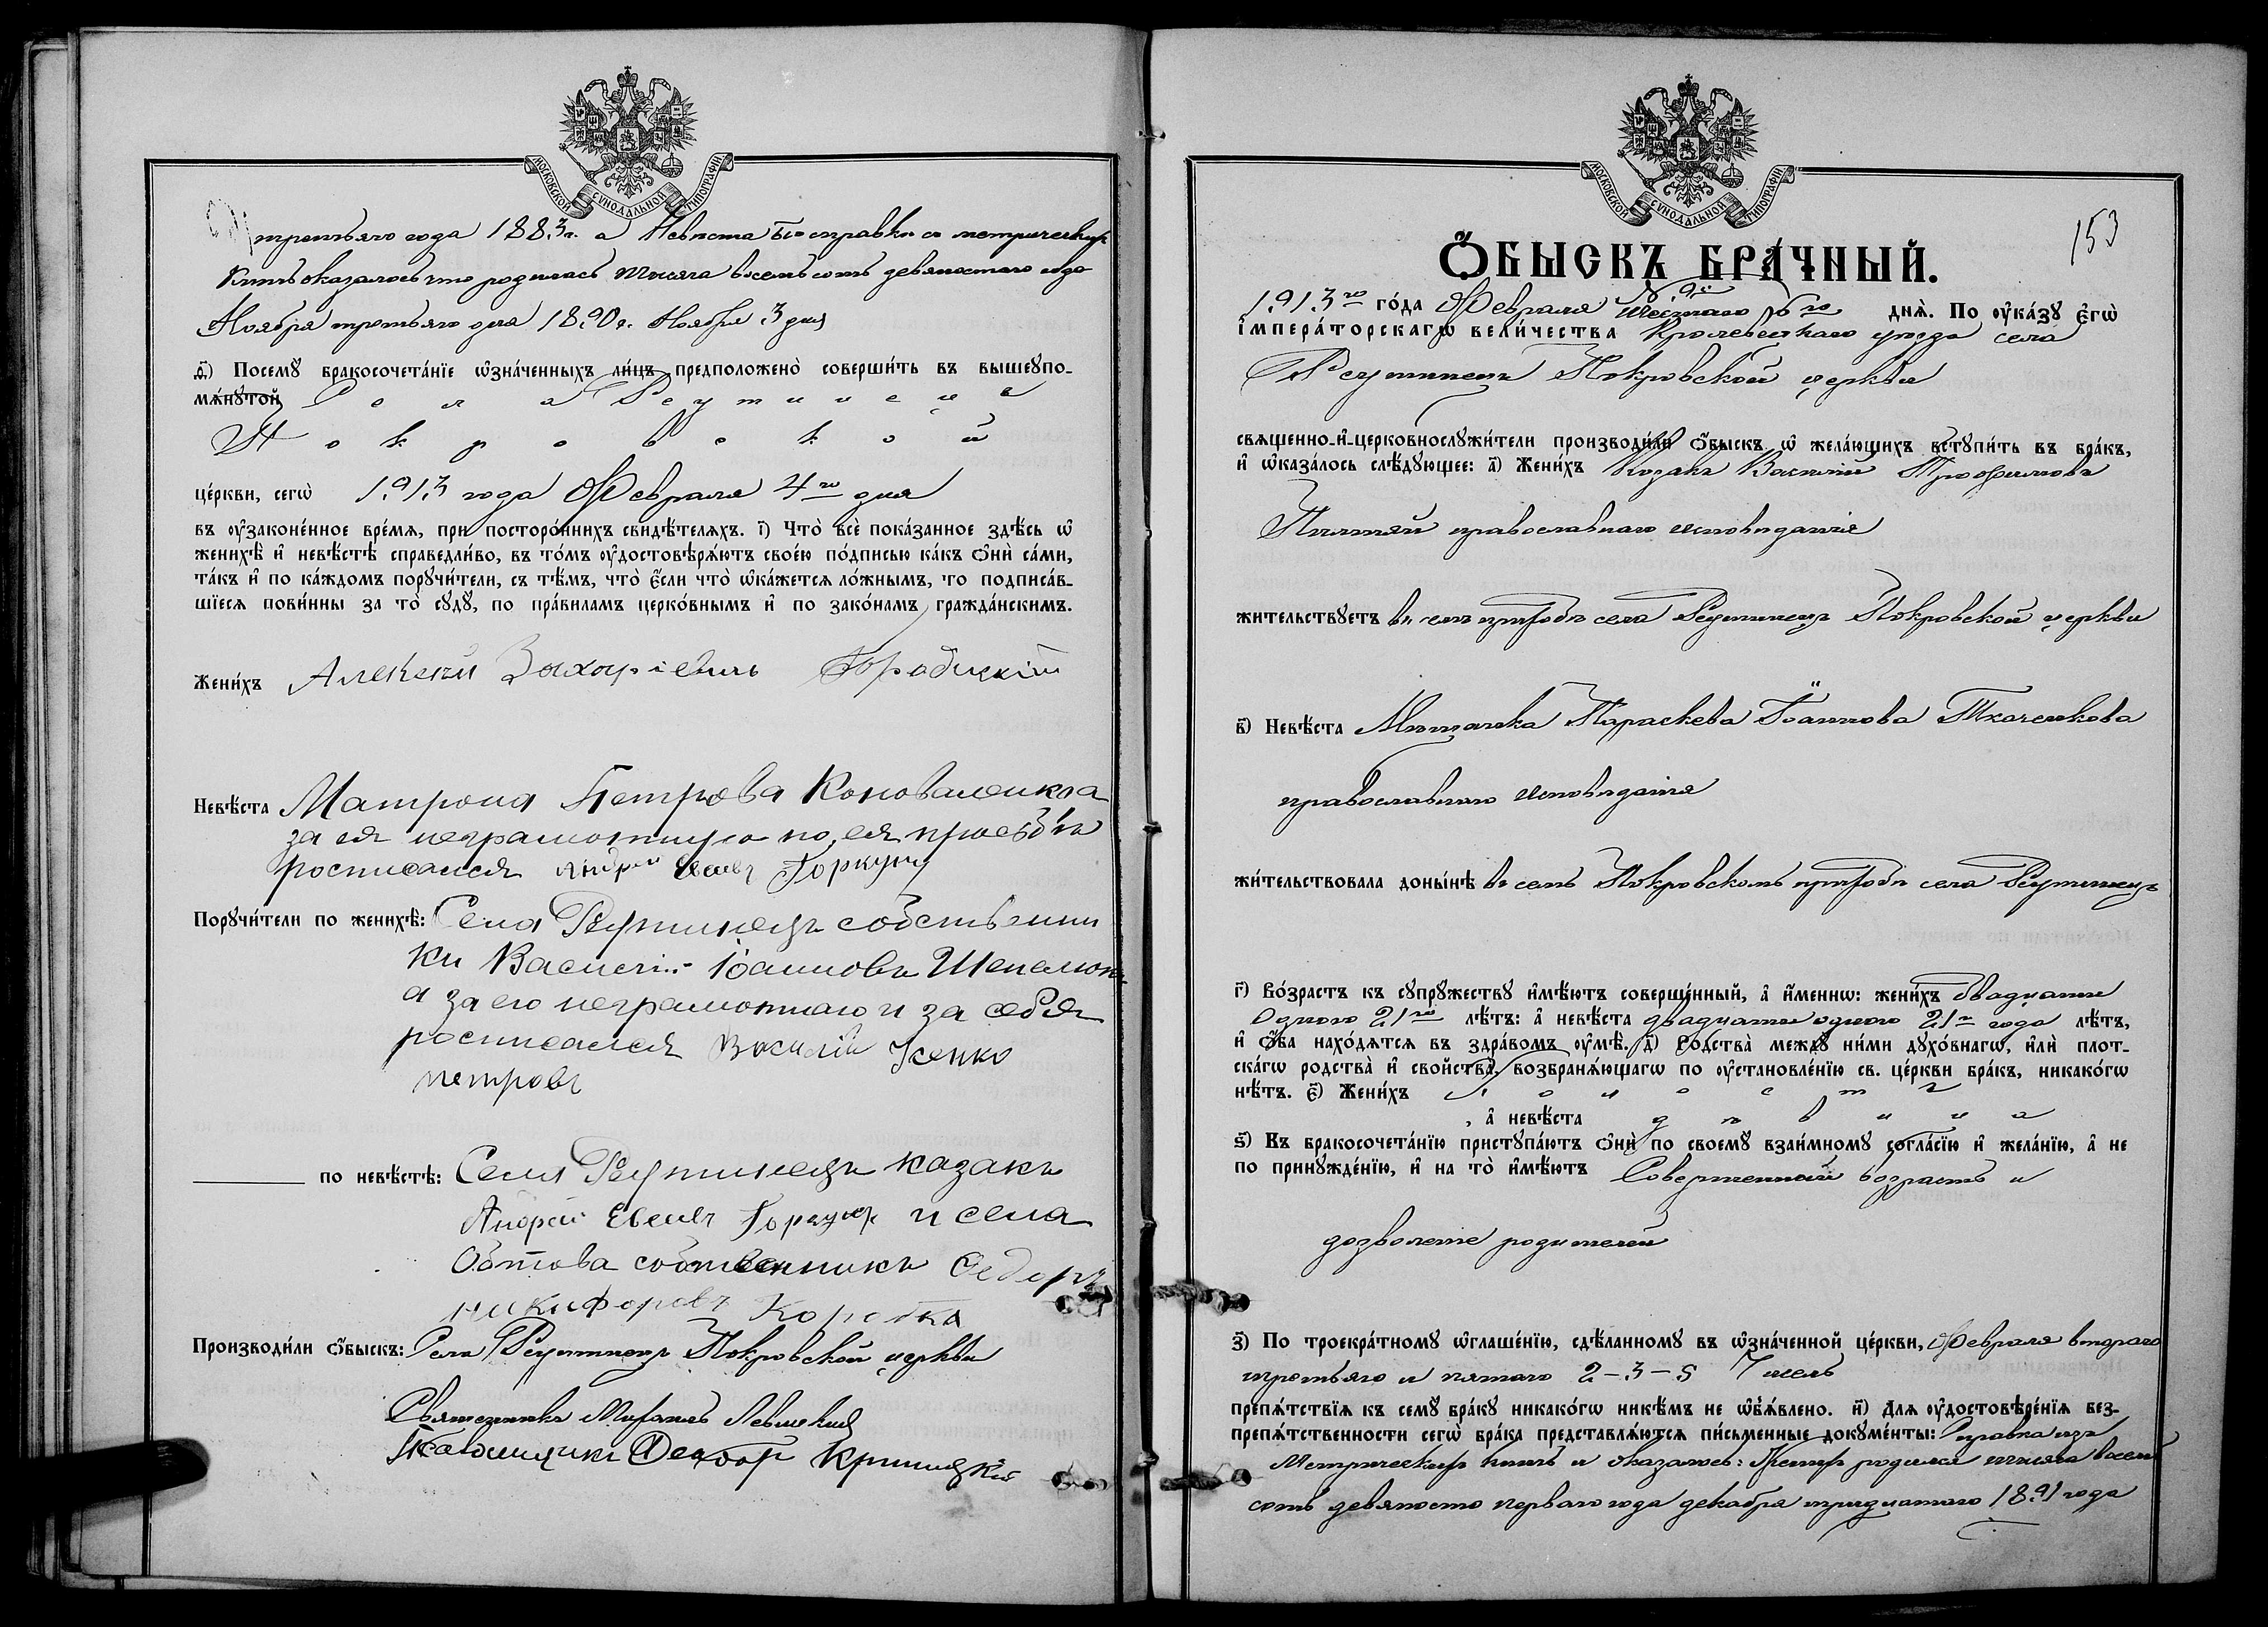 МОСКОВСКОЙ СѴНОДАЛЬНОЙ ТИПОГРАФІИ
третьяго года 1883 г. а Невѣста по справкѣ съ метрическихъ
книгъ оказалось что родилась тысяча восемь сотъ девяностаго года
Ноября третьяго дня 1890 г. Ноября 3 дня
Ѳ҃) Посемꙋ̀ бракосочета́нїе ѡ҆зна́ченныхъ ли́цъ предположено̀ соверши́ть въ вышеꙋпо-
мѧ́нꙋтой Села Реутинецъ
Покровской
це́ркви, сегѡ̀ 1913 года Февраля 4го дня
въ ᲂу҆законе́нное вре́мя, при посторо́ннихъ свидѣ́теляхъ. і҃) Что̀ всѐ пока́занное здѣ́сь ѡ҆
женихѣ̀ и҆ невѣ́стѣ справедли́во, въ то́мъ ᲂу҆достовѣрѧ́ютъ свое́ю по́дписью ка́къ ѻ҆нѝ са́ми,
та́къ и҆ по ка́ждомъ порꙋчи́тели, съ тѣ́мъ, что̀ є҆́сли что̀ ѡ҆ка́жется ло́жнымъ, то подписа́в-
шїеся пови́нны за то̀ сꙋдꙋ̀, по пра́виламъ церко́внымъ и҆ по зако́намъ гражда́нскимъ.
Жени́хъ Алексѣй Захаріевичъ
Невѣ́ста Матрона Петрова Коноваленкоа
за ея неграмотную по ея просьбѣ
росписался Андрей Евсѣевъ Горкунъ
Порꙋчи́тели по женихѣ̀: Села Реутинецъ собственни
ки Василій Іоанновъ
а за его неграмотнаго и за себя
росписался Василій Усенко
петровъ
по невѣ́стѣ: Села Реутинецъ казакъ
Андрей Евсѣевъ Горкунъ и села
Обтова собственникъ Федоръ
никифоровъ Коротка
Производи́ли ѻ҆́быскъ: Села Реутинецъ Покровской церкви
Священникъ Михаилъ Левицкій
Псаломщикъ Ѳеодоръ Криницкій
МОСКОВСКОЙ СѴНОДАЛЬНОЙ ТИПОГРАФІИ
153
Ѻ҆́БЫСКЪ БРА́ЧНЫЙ.
1913го го́да Февраля шестаго 6го днѧ̀. По ᲂу҆ка́зꙋ Є҆гѡ̀
І҆мпера́торскагѡ вели́чества Кролевецкаго уѣзда села
Реутинецъ Покровской церкви
свяшенно-и҆-церковнослꙋжи́тели производи́ли ѻ҆́быскъ ѡ҆ жела́ющихъ встꙋпи́ть въ бра́къ,
и҆ ѡ҆каза́лось слѣ́дꙋющее: а҃) Жени́хъ Козакъ Василій Трофимовъ
православнаго исповѣданія
жи́тельствꙋетъ въ семъ приходѣ села Реутинецъ Покровской церкви
в҃) Невѣ́ста Мѣщанка Параскева Іоаннова Ткаченкова
православнаго исповѣданія
жи́тельствовала доны́нѣ въ семъ Покровскомъ приходѣ села Реутинецъ
г҃) Во́зрастъ къ сꙋпрꙋ́жествꙋ и҆мѣ́ютъ соверше́нный, а҆ и҆́менно: жени́хъ двадцати
одного 21го лѣ́тъ: а҆ невѣ́ста двадцати одного 21го года лѣ́тъ,
и҆ ѻ҆́ба нахо́дятся въ здра́вомъ ᲂу҆мѣ̀. д҃) Родства̀ междꙋ̀ ни́ми дꙋхо́внагѡ, и҆лѝ плот-
ска́гѡ родства̀ и҆ свойства̀, возбранѧ́ющагѡ по ᲂу҆становле́нїю св. це́ркви бра́къ, никако́гѡ
нѣ́тъ. є҃) Жени́хъ холостъ
, а҆ невѣ́ста дѣвица
ѕ҃) Въ бракосочета́нїю пристꙋпа́ютъ ѻ҆нѝ по своемꙋ̀ взаи́мномꙋ согла́сїю и҆ жела́нїю, а҆ не
по принꙋжде́нїю, и҆ на то̀ и҆мѣ́ютъ Совершенный возрастъ и
дозволеніе родителей
з҃) По троекра́тномꙋ ѡ҆глаше́нїю, сдѣ́ланномꙋ въ ѡ҆зна́ченной це́ркви, Февраля втораго
третьяго и пятаго 2-3-5 чиселъ
препѧ́тствїя къ семꙋ̀ бра́кꙋ никако́гѡ никѣ́мъ не ѡ҆б̾ѧ́влено. и҃) Для ᲂу҆достовѣре́нїя без-
препѧ́тственности сегѡ̀ бра́ка представлѧ́ются пи́сьменные докꙋме́нты: Справка изъ
Метрическихъ книгъ и оказалось: Женихъ родился тысяча восемь
сотъ девяносто перваго года декабря тридцатаго 1891 года